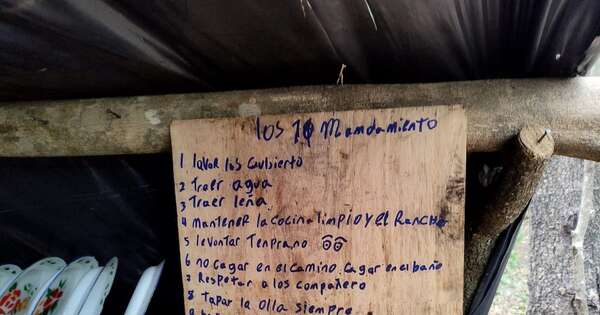 Los 10 Mandamiento
1 lavar los cubierto
2 Traer agua
3 Traer leña
4 mantener la cocina limpio y el Rancho
5 levantar Temprano
6 no cagar en el camino. cagar en el baño
7 Respetar a los compañero
8 Tapar la olla siempre
9